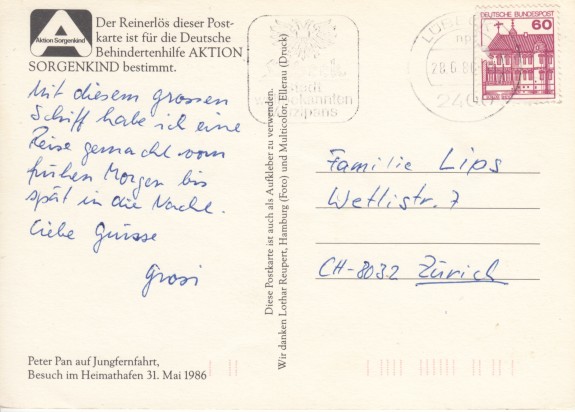 Aktion Sorgenkind
Der Reinerlös dieser Post-
karte ist für die Deutsche
Behindertenhilfe AKTION
SORGENKIND bestimmt.
Mit diesem grossen
Schiff habe ich eine
Reise gemacht vom
frühen Morgen bis
spät in die Nacht.
Liebe Grüsse
Grosi
Peter Pan auf Jungfernfahrt,
Besuch im Heimathafen 31. Mai 1986
Diese Postkarte ist auch als Aufkleber zu verwenden.
Wir danken Lothar Reupert, Hamburg (Foto) und Multicolor, Ellerau (Druck)
DEUTSCHE BUNDESPOST
60
28.6.86
Familie Lips
Wetlistr. 7
CH-8032 Zürich